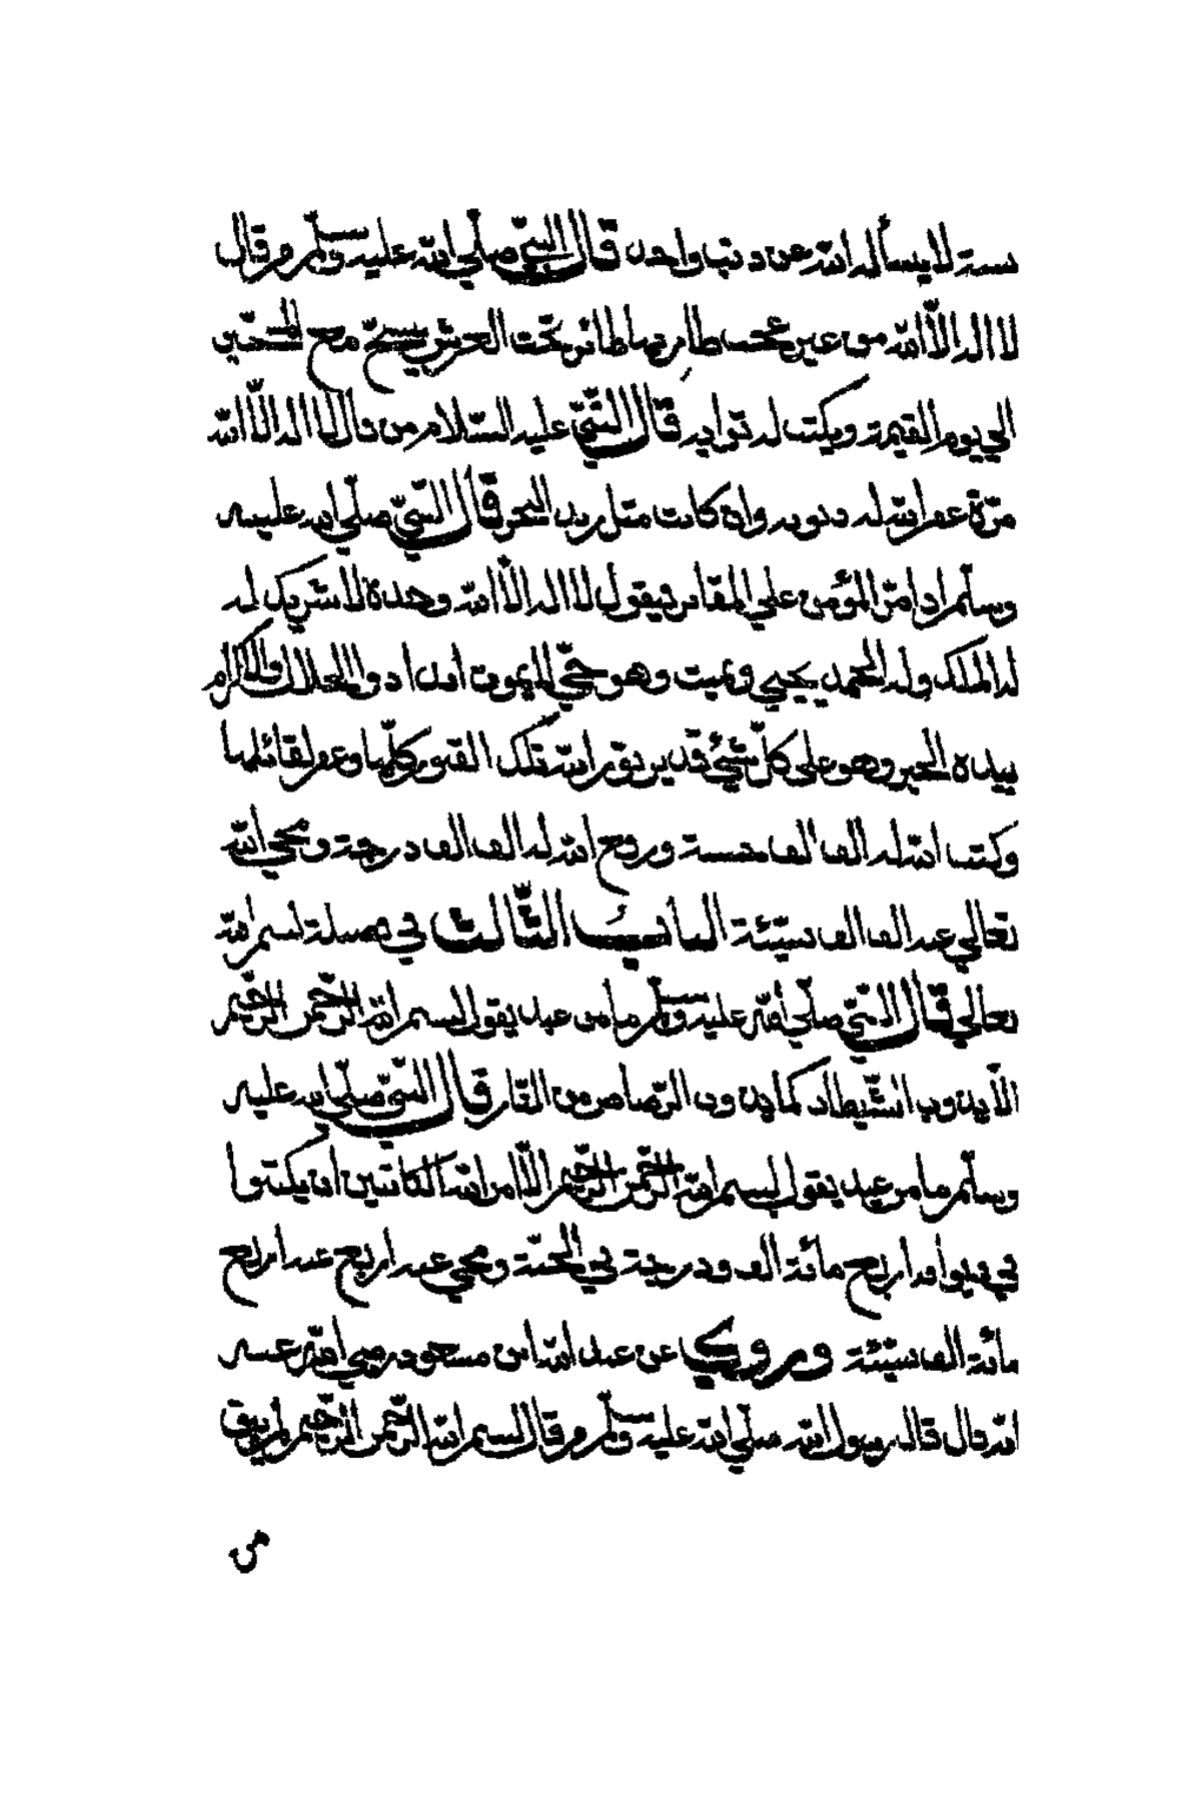 سنة لا يسأله الله عن ذنب واحد قال النبي صلي الله عليه وسلم من قال
لا اله الا الله من غير عجب طار بها طائر تحت العرش يسبح مع المسبحين
الي يوم القيمة ويكتب له ثوابه قال النبي عليه السلام من قال لا اله الا الله
مرة غفر الله له ذنوبه وان كانت مثل زبد البحر قال النبي صلي الله عليه
وسلم اذا مر المؤمن علي المقابر فيقول لا اله الا الله وحده لا شريك له
له الملك وله الحمد يحيي ويميت وهو حي لا يموت ابدا ذو الجلال والاكرام
بيده الخير وهو علي كل شئ قدير نور الله تلك القبور كلها وغفر لقائلها
وكتب الله له الف الف حسنة ورفع الله له الف الف درجة ومحي الله
تعالي عنه الف الف سيئة الباب الثالث في فضيلة بسم الله
تعالي قال النبي صلي الله عليه وسلم ما من عبد يقول بسم الله الرحمن الرحيم
الا يذوب الشيطان كما يذوب الرصاص من النار قال النبي صلي الله عليه
وسلم ما من عبد يقول بسم الله الرحمن الرحيم الا امر الله الكاتبين ان يكتبوا
في ديوانه اربع مائة الف درجة في الجنة ومحي عنه اربع عنه اربع
مائة الف سيئة وروي عن عبد الله ابن مسعود رضي الله عنه
انه قال قال رسول الله صلي الله عليه وسلم من قال بسم الله الرحمن الرحيم لم يبق
من